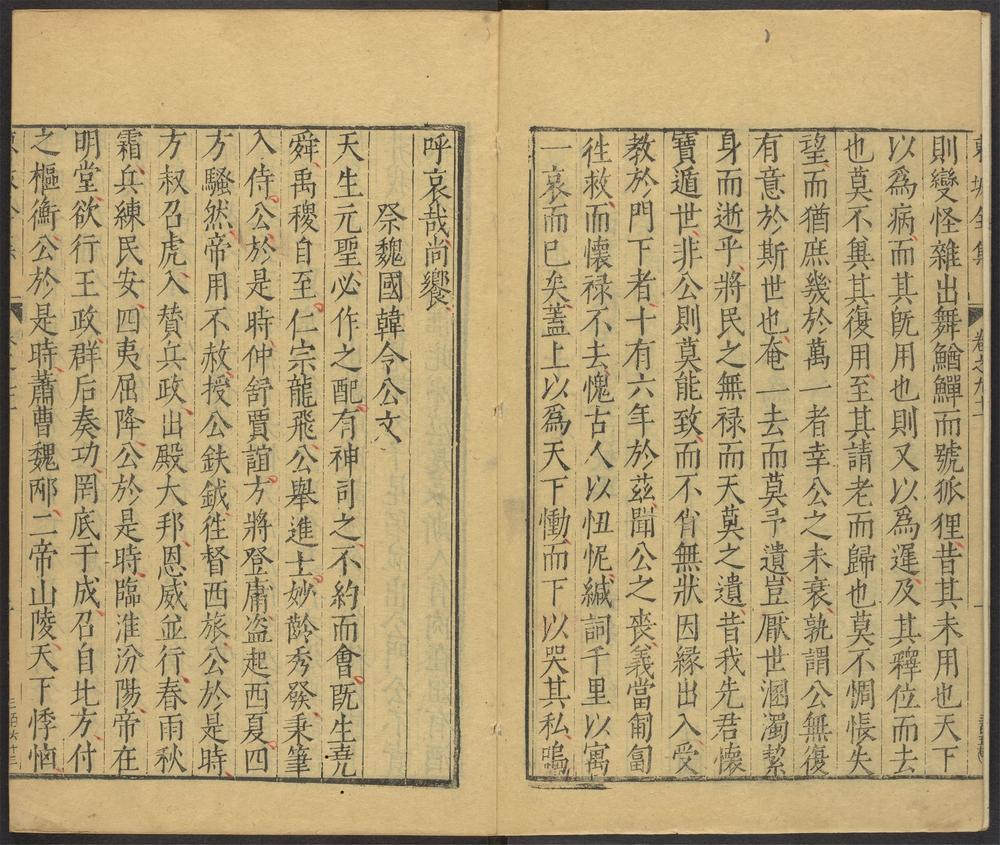 東坡全集 卷之九十一
則變怪雜出舞鰌鱓而號狐狸昔其未用也天下
以爲病而其既用也則又以爲遲及其釋位而去
也莫不冀其復用至其請老而歸也莫不惆悵失
望而猶庶幾於萬一者幸公之未衰孰謂公無復
有意於斯世也奄一去而莫予遺豈厭世溷濁絜
身而逝乎將民之無祿而天莫之遺昔我先君懷
寶遁世非公則莫能致而不肖無狀因緣出入受
教於門下者十有六年於茲聞公之喪義當匍匐
徃救而懷祿不去愧古人以忸怩緘詞千里以寓
一哀而巳矣蓋上以爲天下慟而下以哭其私嗚
呼哀哉尚饗
祭魏國韓令公文
天生元聖必作之配有神司之不約而會既生堯
舜禹稷自至仁宗龍飛公舉進士妙齡秀發秉筆
入侍公於是時仲舒賈誼方將登庸盗起西夏四
方騷然帝用不赦授公鈇鉞徃督西旅公於是時
方叔召虎入贊兵政出殿大邦恩威並行春雨秋
霜兵練民安四夷屈降公於是時臨淮汾陽帝在
明堂欲行王政群后奏功罔底于成召自北方付
之樞衡公於是時蕭曹魏邴二帝山陵天下悸恟
三百六十三